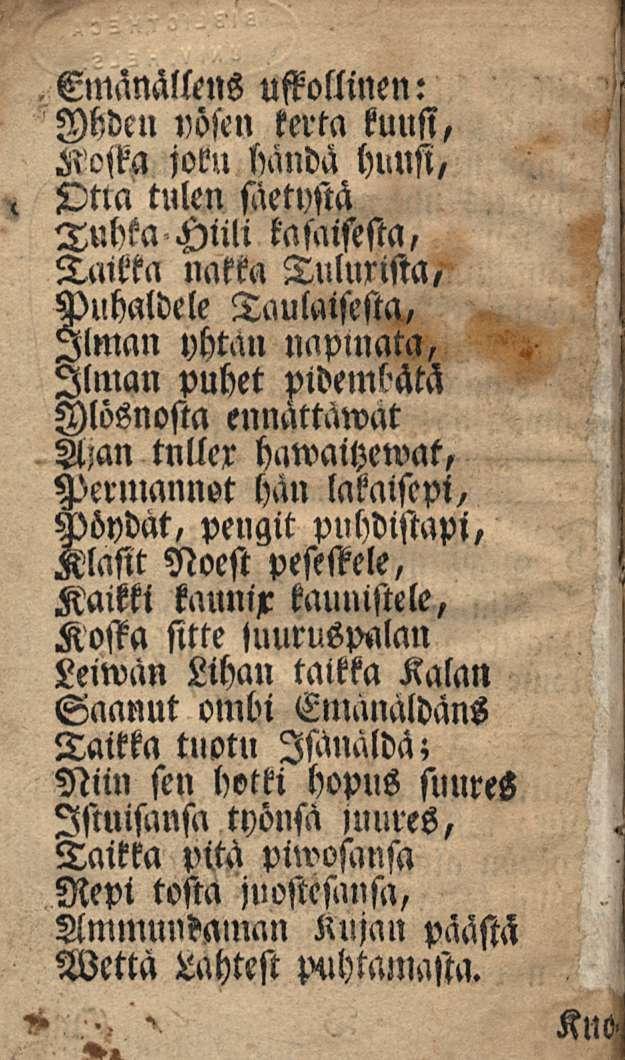 Emänällens uskollinen:
Yhden yösen kerta kuusi,
Koska joku händä huusi,
Otta tulen säetystä
Tuhka-Hiili kasaisesta,
Taikka nakka Tuluxista,
Puhaldele Taulaisesta,
Ilman yhtän napinata,
Ilman puhet pidembätä
Ylösnosta ennättäwät
Ajan tullex hawaitzewat,
Permannot hän lakaisepi,
Pöydät, pengit puhdistapi,
Klasit Noest peseskele,
Kaikki kaunix kaunistele,
Koska sitte suuruspalan
Leiwän Lihan taikka Kalan
Saanut ombi Emänäldäns
Taikka tuotu Isänäldä;
Niin sen hotki hopus suures
Istuisansa työnsä juures,
Taikka pitä piwosansa
Repi tosta juostesansa,
Ammundaman Kujan päästä
Wettä Lähtest puhtamasta.
Kuo-